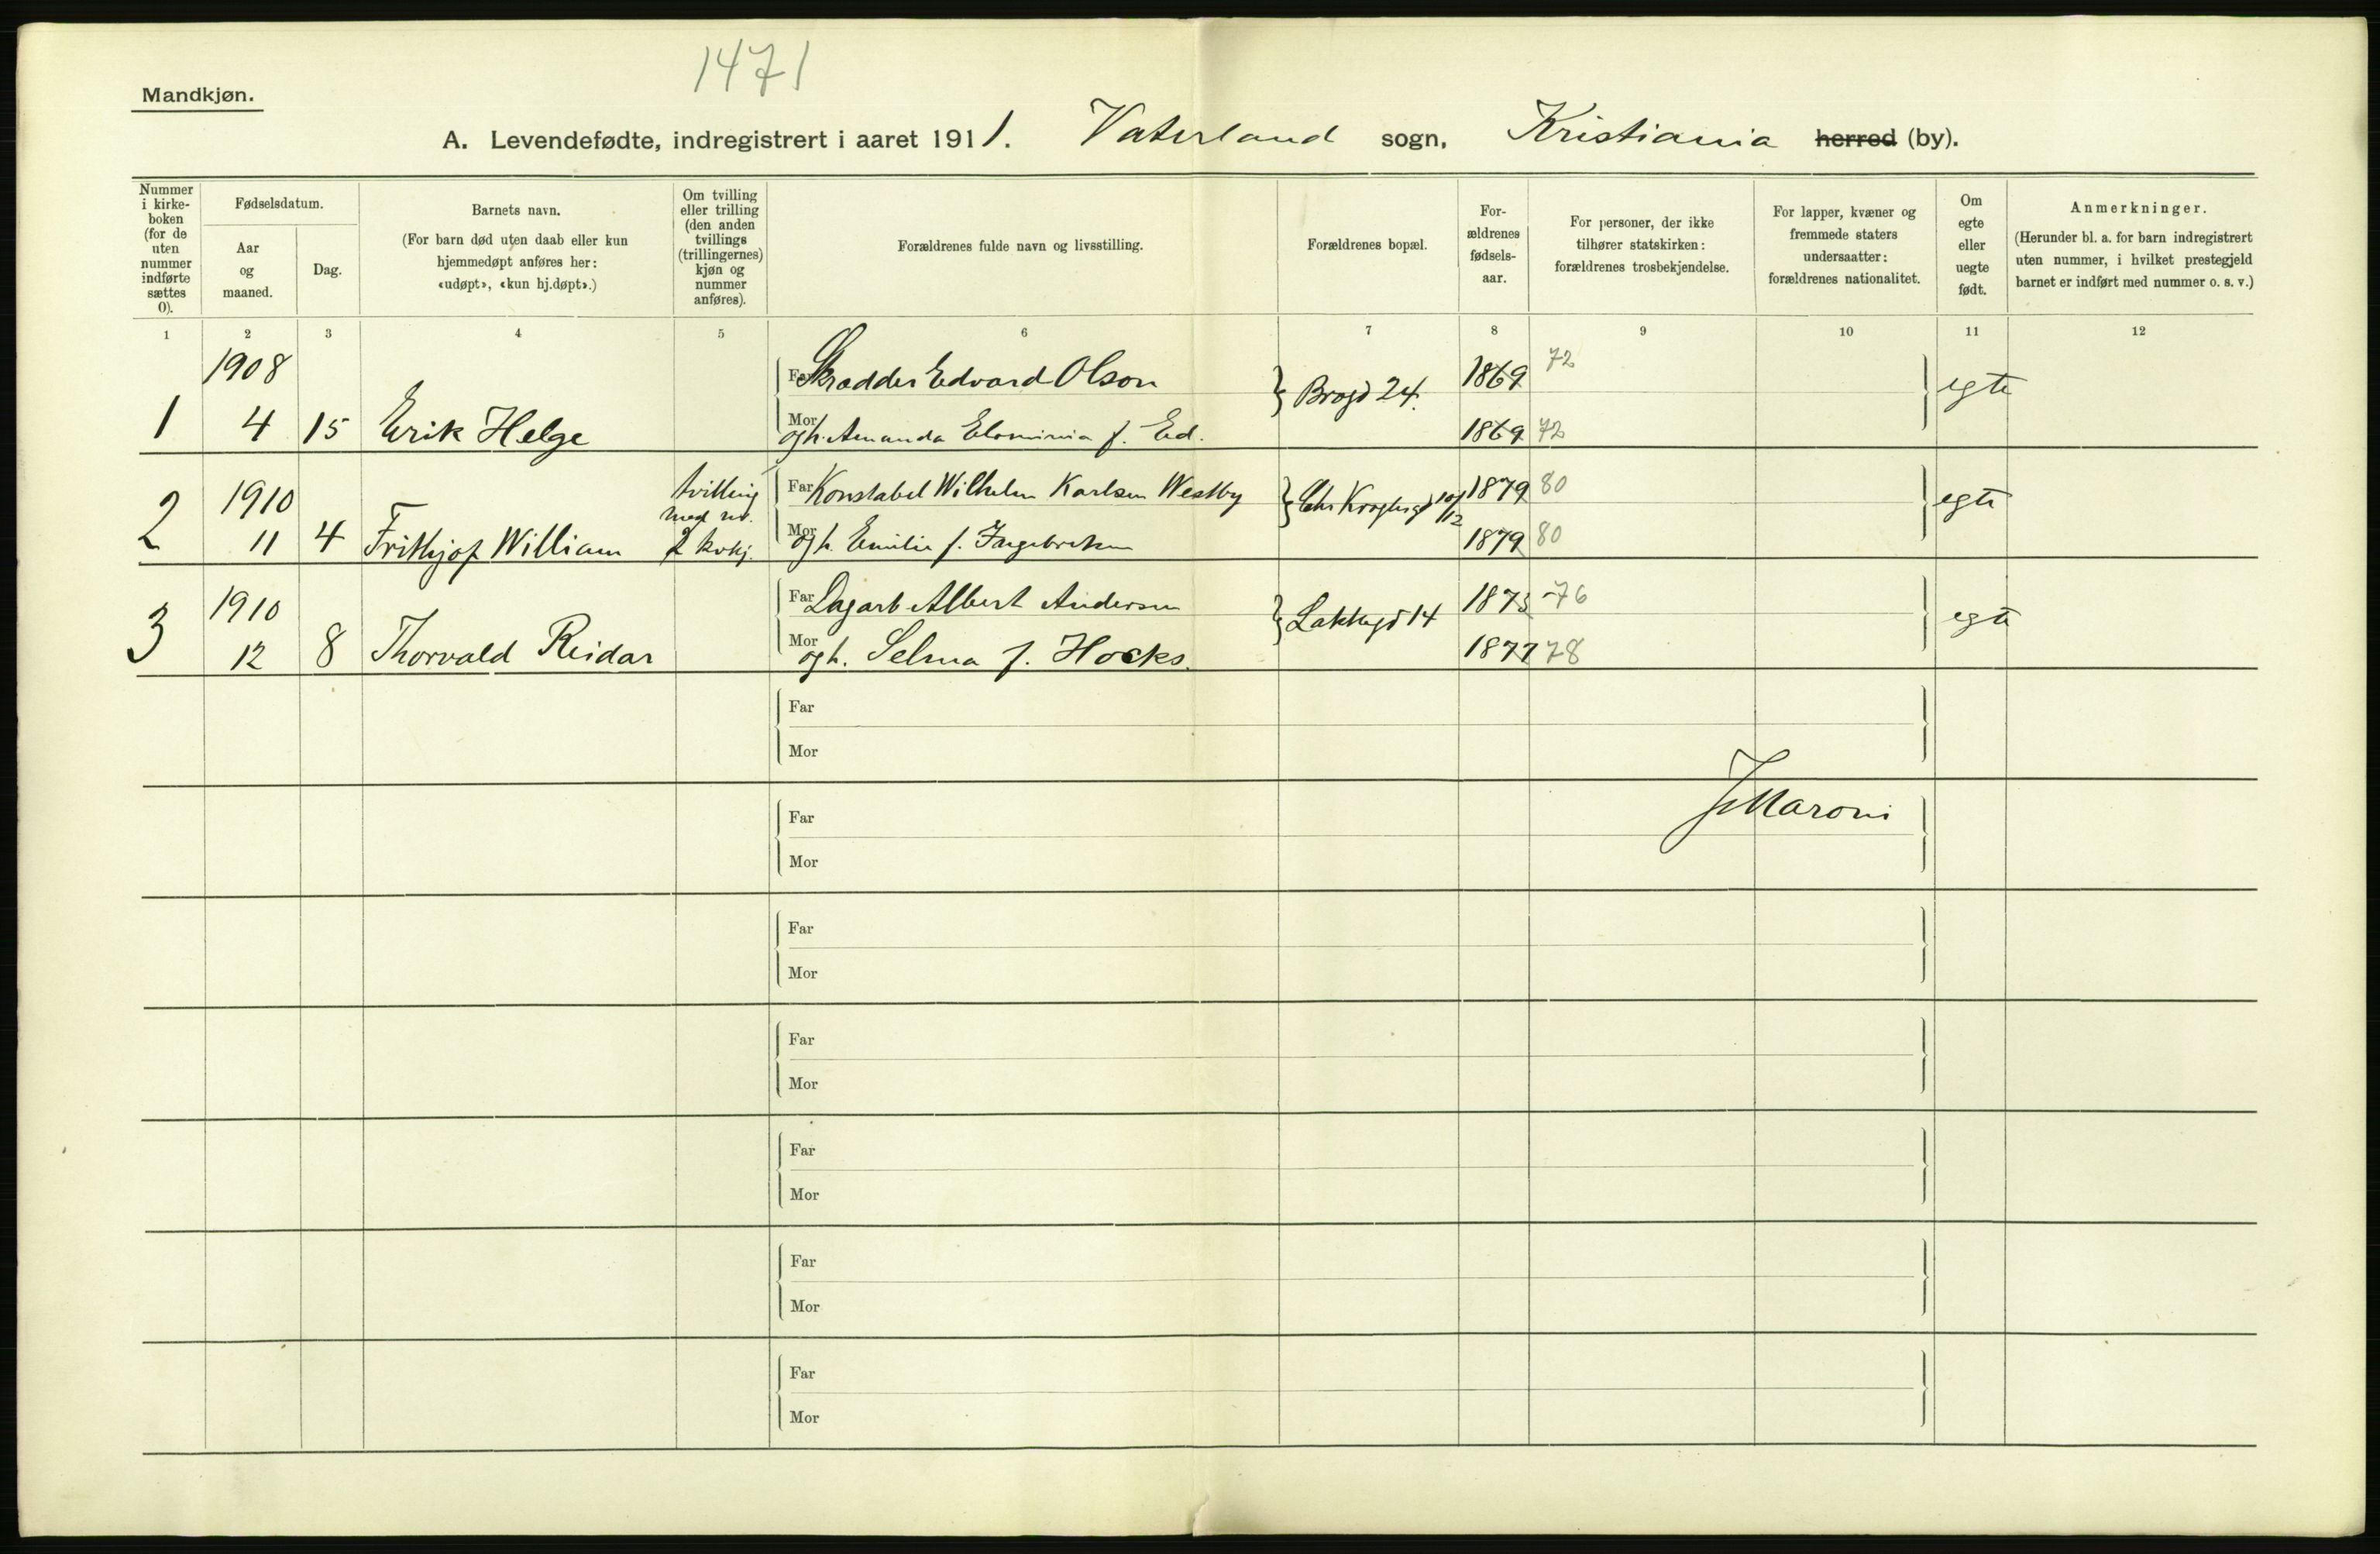 1471
Mandkjøn.
A. Levendefødte, indregistrert i aaret 1911. Vaterland sogn, Kristiania herred (by).
Nummer i kirke-boken (for de uten nummer indførte sættes 0).
Fødselsdatum.
Aar og maaned.
Dag.
Barnets navn.
(For barn død uten daab eller kun hjemmedøpt anføres her: «udøpt», «kun hj.døpt».)
Om tvilling eller trilling (den anden tvillings (trillingernes) kjøn og nummer anføres).
Forældrenes fulde navn og livsstilling.
Forældrenes bopæl.
For-ældrenes fødsels-aar.
For personer, der ikke tilhører statskirken: forældrenes trosbekjendelse.
For lapper, kvæner og fremmede staters undersaatter: forældrenes nationalitet.
Om egte eller uegte født.
Anmerkninger.
(Herunder bl. a. for barn indregistrert uten nummer, i hvilket prestegjeld barnet er indført med nummer o. s. v.)
1 2 3 4 5 6 7 8 9 10 11 12
1908 Far Skrædder Edvard Olson Brogd 24. 1869 72 egte
1 4 15 Erik Helge Mor og h. Amanda f. Ed. 1869 72
1910 tvilling med nr. Far Konstabel Wilhelm Karlsen Westby Chr Kroghsgd 1879 80 egte
2 11 4 Frithjof William 2 kvkj. Mor og h. Emilie f. Ingebretsen 1879 80
1910 Far Dagarb Albert Andersen Lakkegd 14 1875 76 egte
3 12 8 Thorvald Reidar Mor og h. Selma f. Hocks. 1877 78
Far
Mor
JMaroni
Far
Mor
Far
Mor
Far
Mor
Far
Mor
Far
Mor
Far
Mor